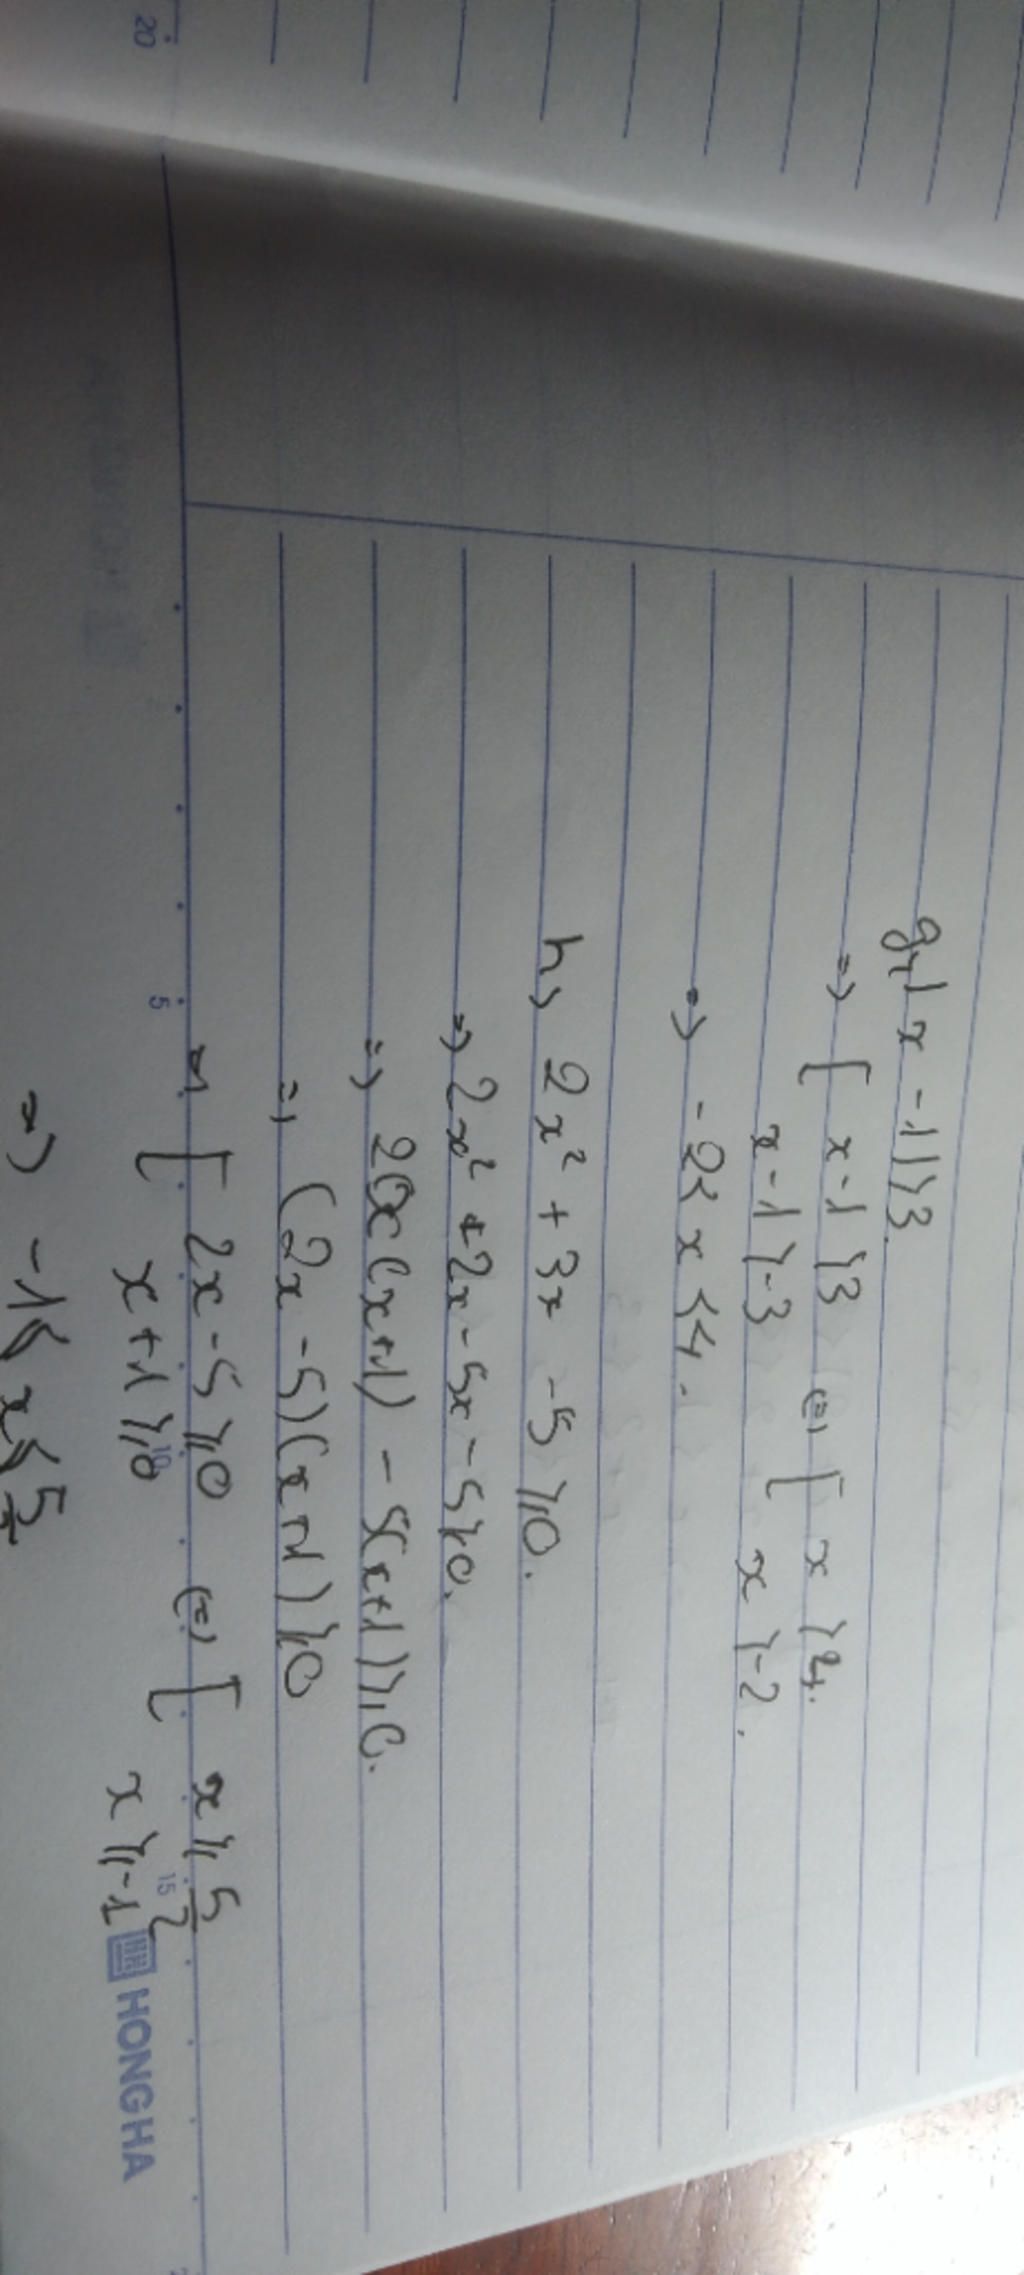 g, |x - 1| > 3.
=> [ x - 1 > 3 (=) [ x > 4.
x - 1 > -3 x > -2.
=> -2 < x < 4.
h, 2x² + 3x - 5 ⩾ 0.
=> 2x² + 2x - 5x - 5 ⩾ 0.
=> 2x(x+1) - 5(x+1) ⩾ 0.
=> (2x - 5)(x+1) ⩾ 0
=> [ 2x - 5 ⩾ 0 (=) [ x ⩾ 5/2
x + 1 ⩾ 0 x ⩾ -1
=> -1 ⩽ x ⩽ 5/2
20
5
10
15
HONG HA